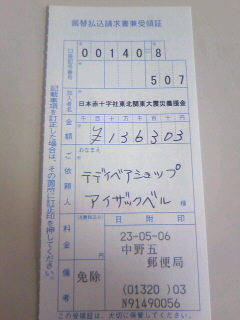 振替払込請求書兼受領証
口座記号番号
00140=8
507
加入者名
日本赤十字社東北関東大震災義援金
金額
千百十万千百十円
¥136303
ご依頼人
おなまえ
テディベアショップ
アイザックベル
様
料金
(消費税込み)
日附印
23-05-06
中野五
郵便局
備考
免除
(01320)03
N91490056
記載事項を訂正した場合は、その箇所に訂正印を押してください。
この受領証は、大切に保管してください。